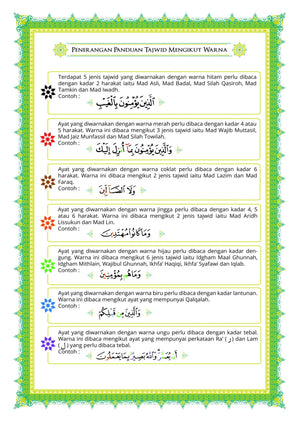 Penerangan Panduan Tajwid Mengikut Warna
Terdapat 5 jenis tajwid yang diwarnakan dengan warna hitam perlu dibaca
dengan kadar 2 harakat iaitu Mad Asli, Mad Badal, Mad Silah Qasiroh, Mad
Tamkin dan Mad Iwadh.
Contoh :
الَّذِينَ يُؤْمِنُونَ بِالْغَيْبِ
Ayat yang diwarnakan dengan warna merah perlu dibaca dengan kadar 4 atau
5 harakat. Warna ini dibaca mengikut 3 jenis tajwid iaitu Mad Wajib Muttasil,
Mad Jaiz Munfassil dan Mad Silah Towilah.
Contoh :
وَالَّذِينَ يُؤْمِنُونَ بِمَآ أُنزِلَ إِلَيْكَ
Ayat yang diwarnakan dengan warna coklat perlu dibaca dengan kadar 6
harakat. Warna ini dibaca mengikut 2 jenis tajwid iaitu Mad Lazim dan Mad
Faraq.
Contoh :
وَلَا الضَّآلِّينَ
Ayat yang diwarnakan dengan warna jingga perlu dibaca dengan kadar 4, 5
atau 6 harakat. Warna ini dibaca mengikut 2 jenis tajwid iaitu Mad Aridh
Lissukun dan Mad Lin.
Contoh :
وَمَا كَانُوا مُهْتَدِينَ
Ayat yang diwarnakan dengan warna hijau perlu dibaca dengan kadar den-
gung. Warna ini dibaca mengikut 6 jenis tajwid iaitu Idgham Maal Ghunnah,
Idgham Mithlain, Wajibul Ghunnah, Ikhfa' Haqiqi, Ikhfa' Syafawi dan Iqlab.
Contoh :
وَمَا هُم بِمُؤْمِنِينَ
Ayat yang diwarnakan dengan warna biru perlu dibaca dengan kadar lantunan.
Warna ini dibaca mengikut ayat yang mempunyai Qalqalah.
Contoh :
وَالَّذِينَ مِن قَبْلِكُمْ
Ayat yang diwarnakan dengan warna ungu perlu dibaca dengan kadar tebal.
Warna ini dibaca mengikut ayat yang mempunyai perkataan Ra' ( ر ) dan Lam
( ل ) yang perlu dibaca tebal.
Contoh :
وَاللَّهُ بَصِيرٌ بِمَا يَعْمَلُونَ